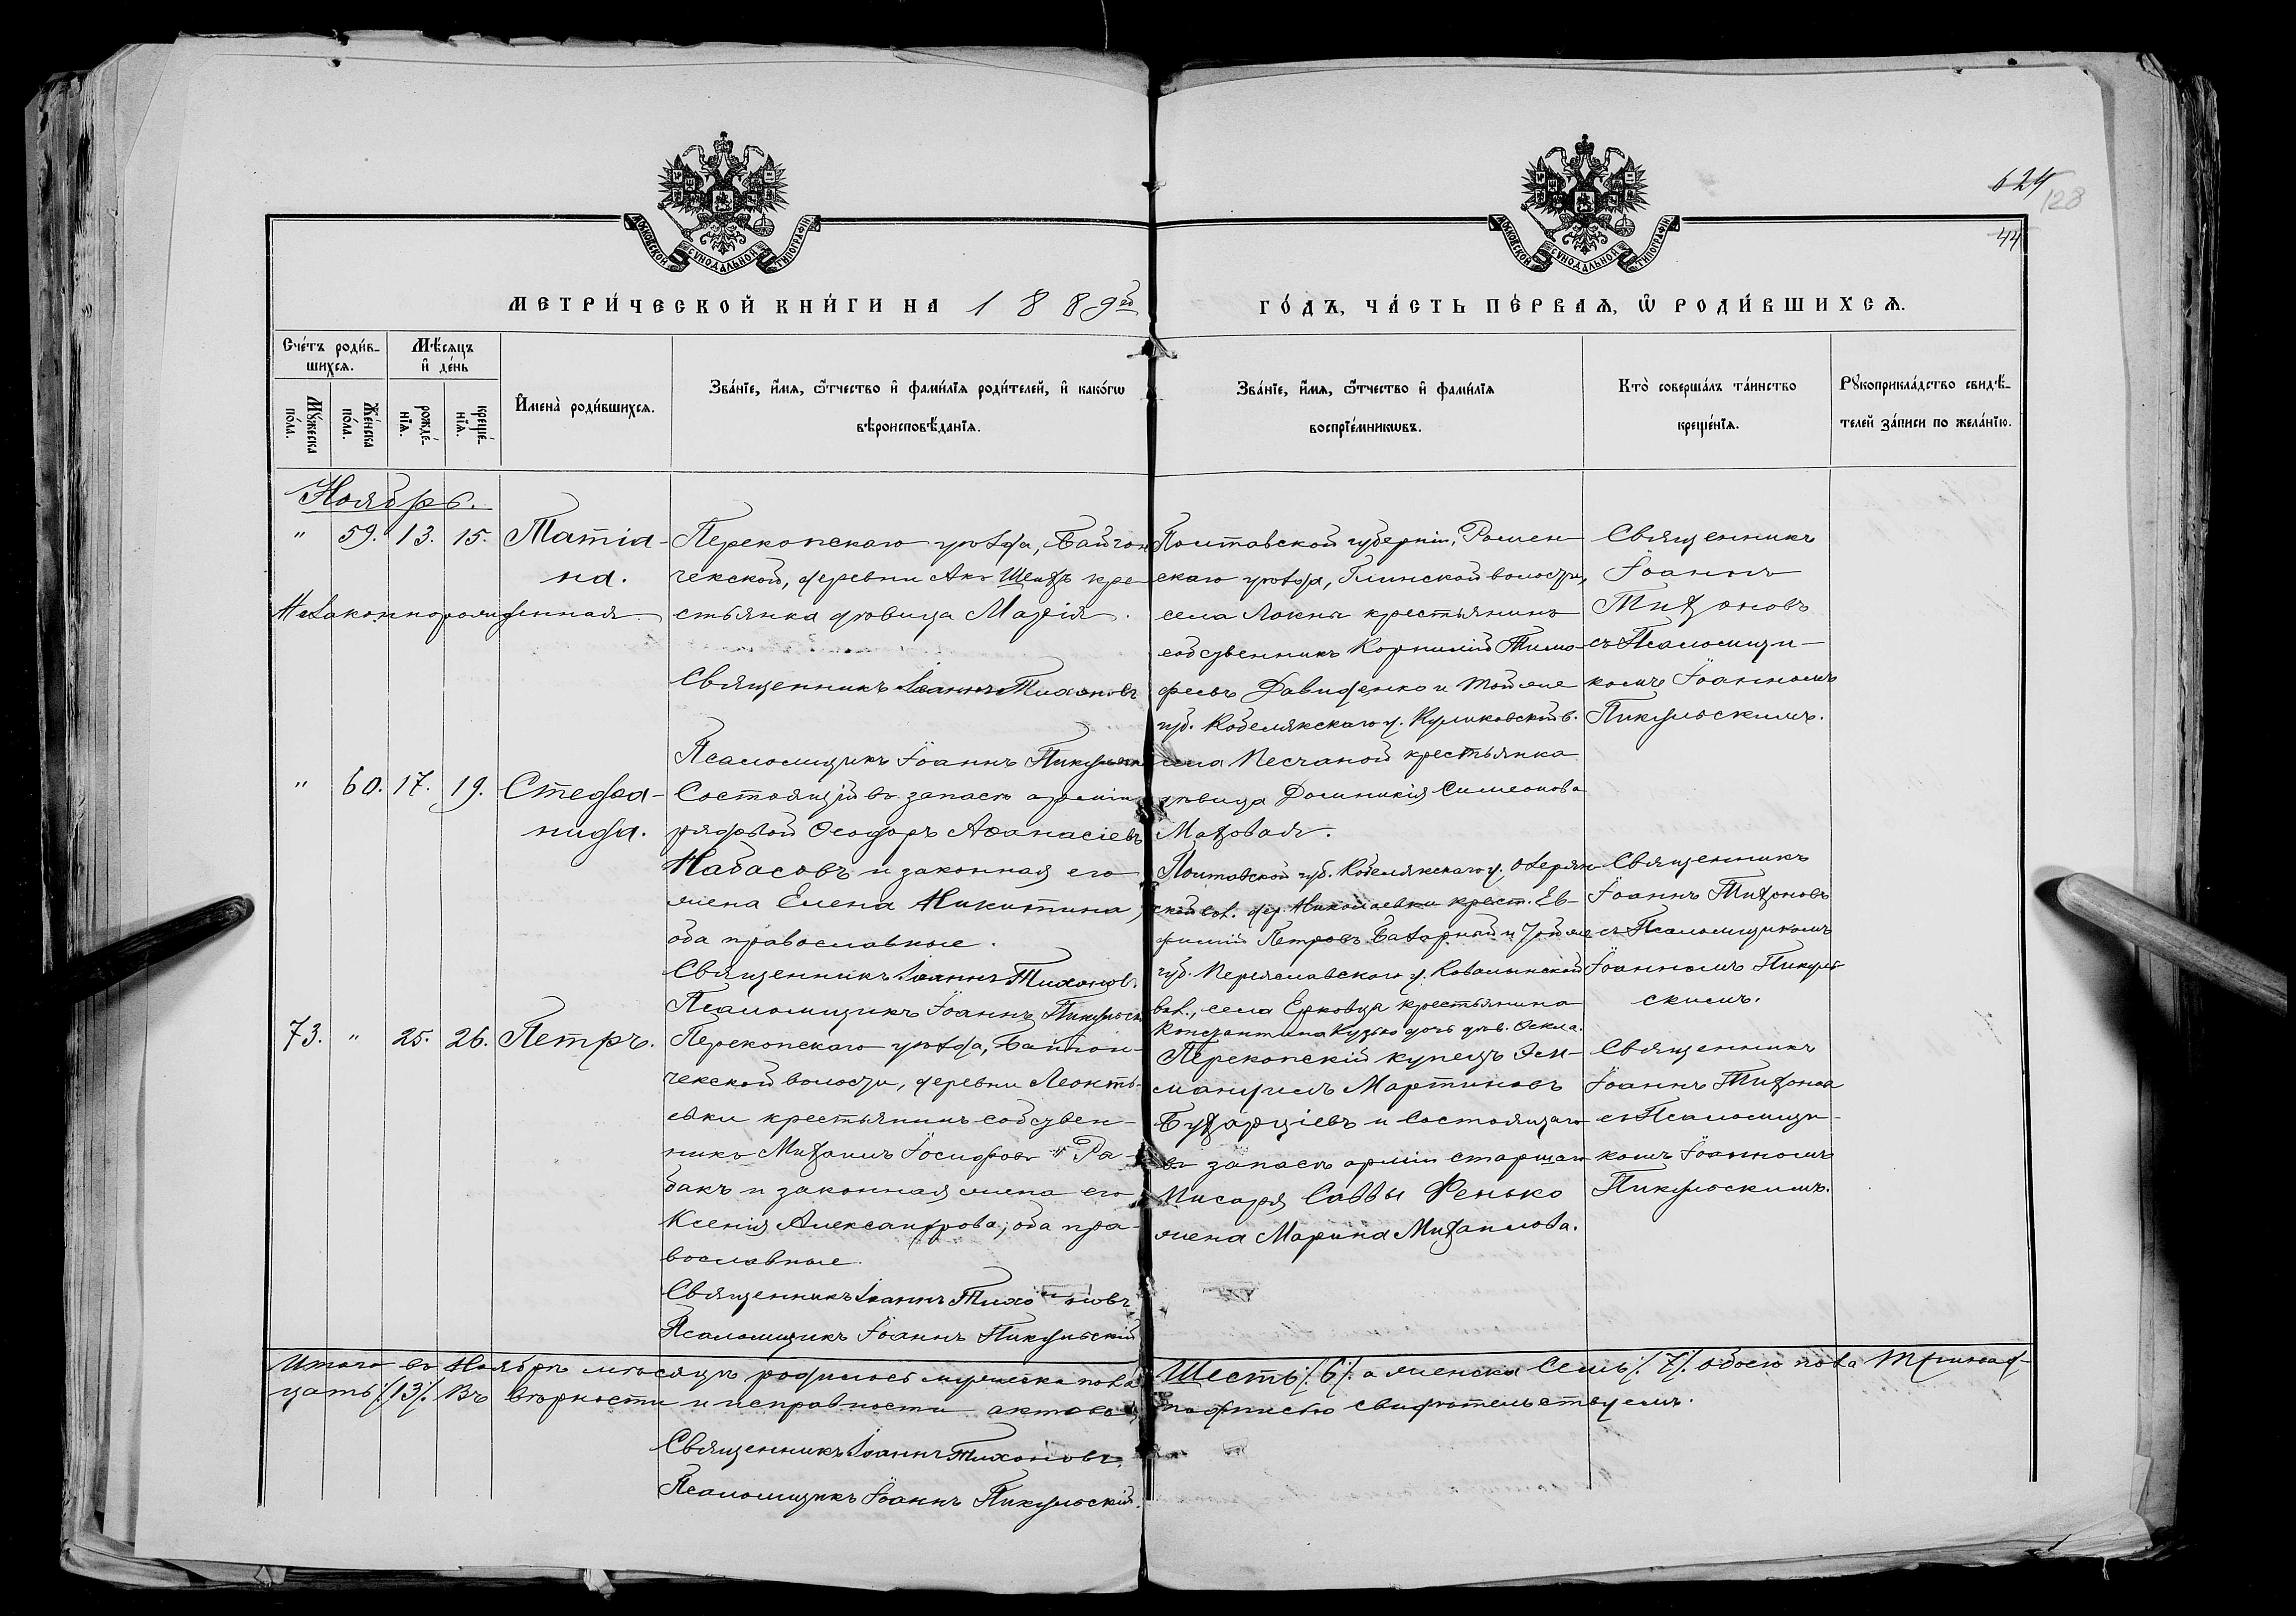 624
128
44
МОСКОВСКОЙ СѴНОДАЛЬНОЙ ТИПОГРАФІИ
МОСКОВСКОЙ СѴНОДАЛЬНОЙ ТИПОГРАФІИ
МЕТРИ́ЧЕСКОЙ КНИ́ГИ НА 1889й
ГО́ДЪ, ЧА́СТЬ ПЕ́РВАЯ, Ѡ РОДИ́ВШИХСЯ.
Сче́тъ роди́в-
шихся.
Мѣ́сяцъ
и де́нь
Му́жеска
по́ла.
Же́нска
по́ла.
рожде́-
нїя.
креще́-
нїя.
Имена̀ роди́вшихся.
Зва́нїе, и́мя, ѻ́тчество и фами́лїя роди́телей, и како́гѡ
вѣроисповѣ́данїя.
Зва́нїе, и́мя, ѻ́тчество и фами́лїя
воспрїе́мникѡвъ.
Кто̀ соверша́лъ та́инство
креще́нїя.
Рꙋкоприкла́дство свидѣ́-
телей за́писи по жела́нїю.
Ноябрь.
" 59. 13. 15. Татіа-
на.
Незаконнорожденная
Перекопскаго уѣзда, Байгон
чекской, деревни Акъ Шеихъ кре
стьянка дѣвица Марія.
Священникъ Іоаннъ Тихоновъ
Псаломщикъ Іоаннъ Пикульскій
Полтавской губерніи, Ромен
скаго уѣзда, Глинской волости,
села Локни крестьянинъ
собственникъ Корнилій Тимо-
феевъ Давиденко и той же
губ. Кобелякскаго у. Куликовской в.
села Песчаной крестьянка
дѣвица Домникія Симеонова
Маховая.
Священникъ
Іоаннъ
Тихоновъ
съ Псаломщи-
комъ Іоанномъ
Пикульскимъ.
" 60. 17. 19. Стефа-
нида.
Состоящій въ запасѣ арміи
рядовой Ѳеодоръ Аѳанасіевъ
Набасовъ и законная его
жена Елена Никитина,
оба православные.
Священникъ Іоаннъ Тихоновъ
Псаломщикъ Іоаннъ Пикульск
Полтавской губ. Кобелякскаго у. Озерян-
ской вол. дер. Николаевки крест. Ев-
фимій Петровъ Базарный и той же
губ. Переяславского у. Ковалынской
вол., села Ерковцы крестьянина
Константина Кузько дочь дѣв. Ѳекла.
Священникъ
Іоаннъ Тихоновъ
съ Псаломщикомъ
Іоанномъ Пикуль-
скимъ.
73. " 25. 26. Петръ.
Перекопскаго уѣзда, Байгон-
чекской волости, деревни Леонть-
евки крестьянинъ собствен-
никъ Михаилъ Іосифовъ Ра-
бакъ и законная жена его
Ксенія Александрова; оба пра-
вославные.
Священникъ Іоаннъ Тихоновъ
Псаломщикъ Іоаннъ Пикульскій
Перекопскій купецъ Эм-
мануилъ Мартиновъ
Бухарціевъ и состоящаго
въ запасѣ арміи старшаго
писаря Саввы Фенько
жена Марина Михаилова.
Священникъ
Іоаннъ Тихонова
съ Псаломщи-
комъ Іоанномъ
Пикульскимъ.
Итого въ Ноябрѣ мѣсяцѣ родилось мужеска пола Шесть /:6/: а женска Семь /:7/: обоего пола Тринад-
цать /:13/: Въ вѣрности и исправности актовъ подписью свидѣтельствуемъ.
Священникъ Іоаннъ Тихоновъ.
Псаломщикъ Іоаннъ Пикульскій.